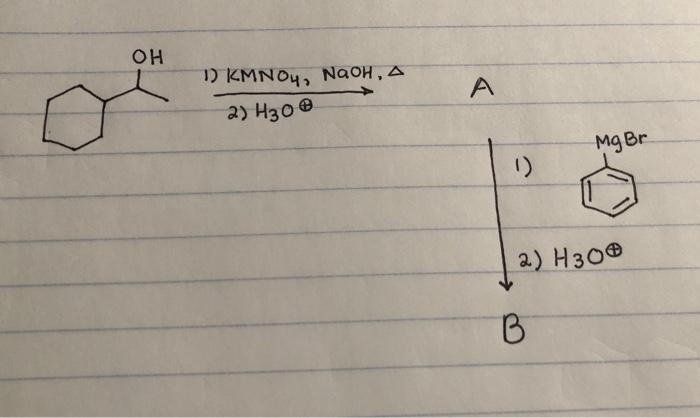 OH
1) KMNO4, NaOH, Δ
2) H3O⊕
A
MgBr
1)
2) H3O⊕
B